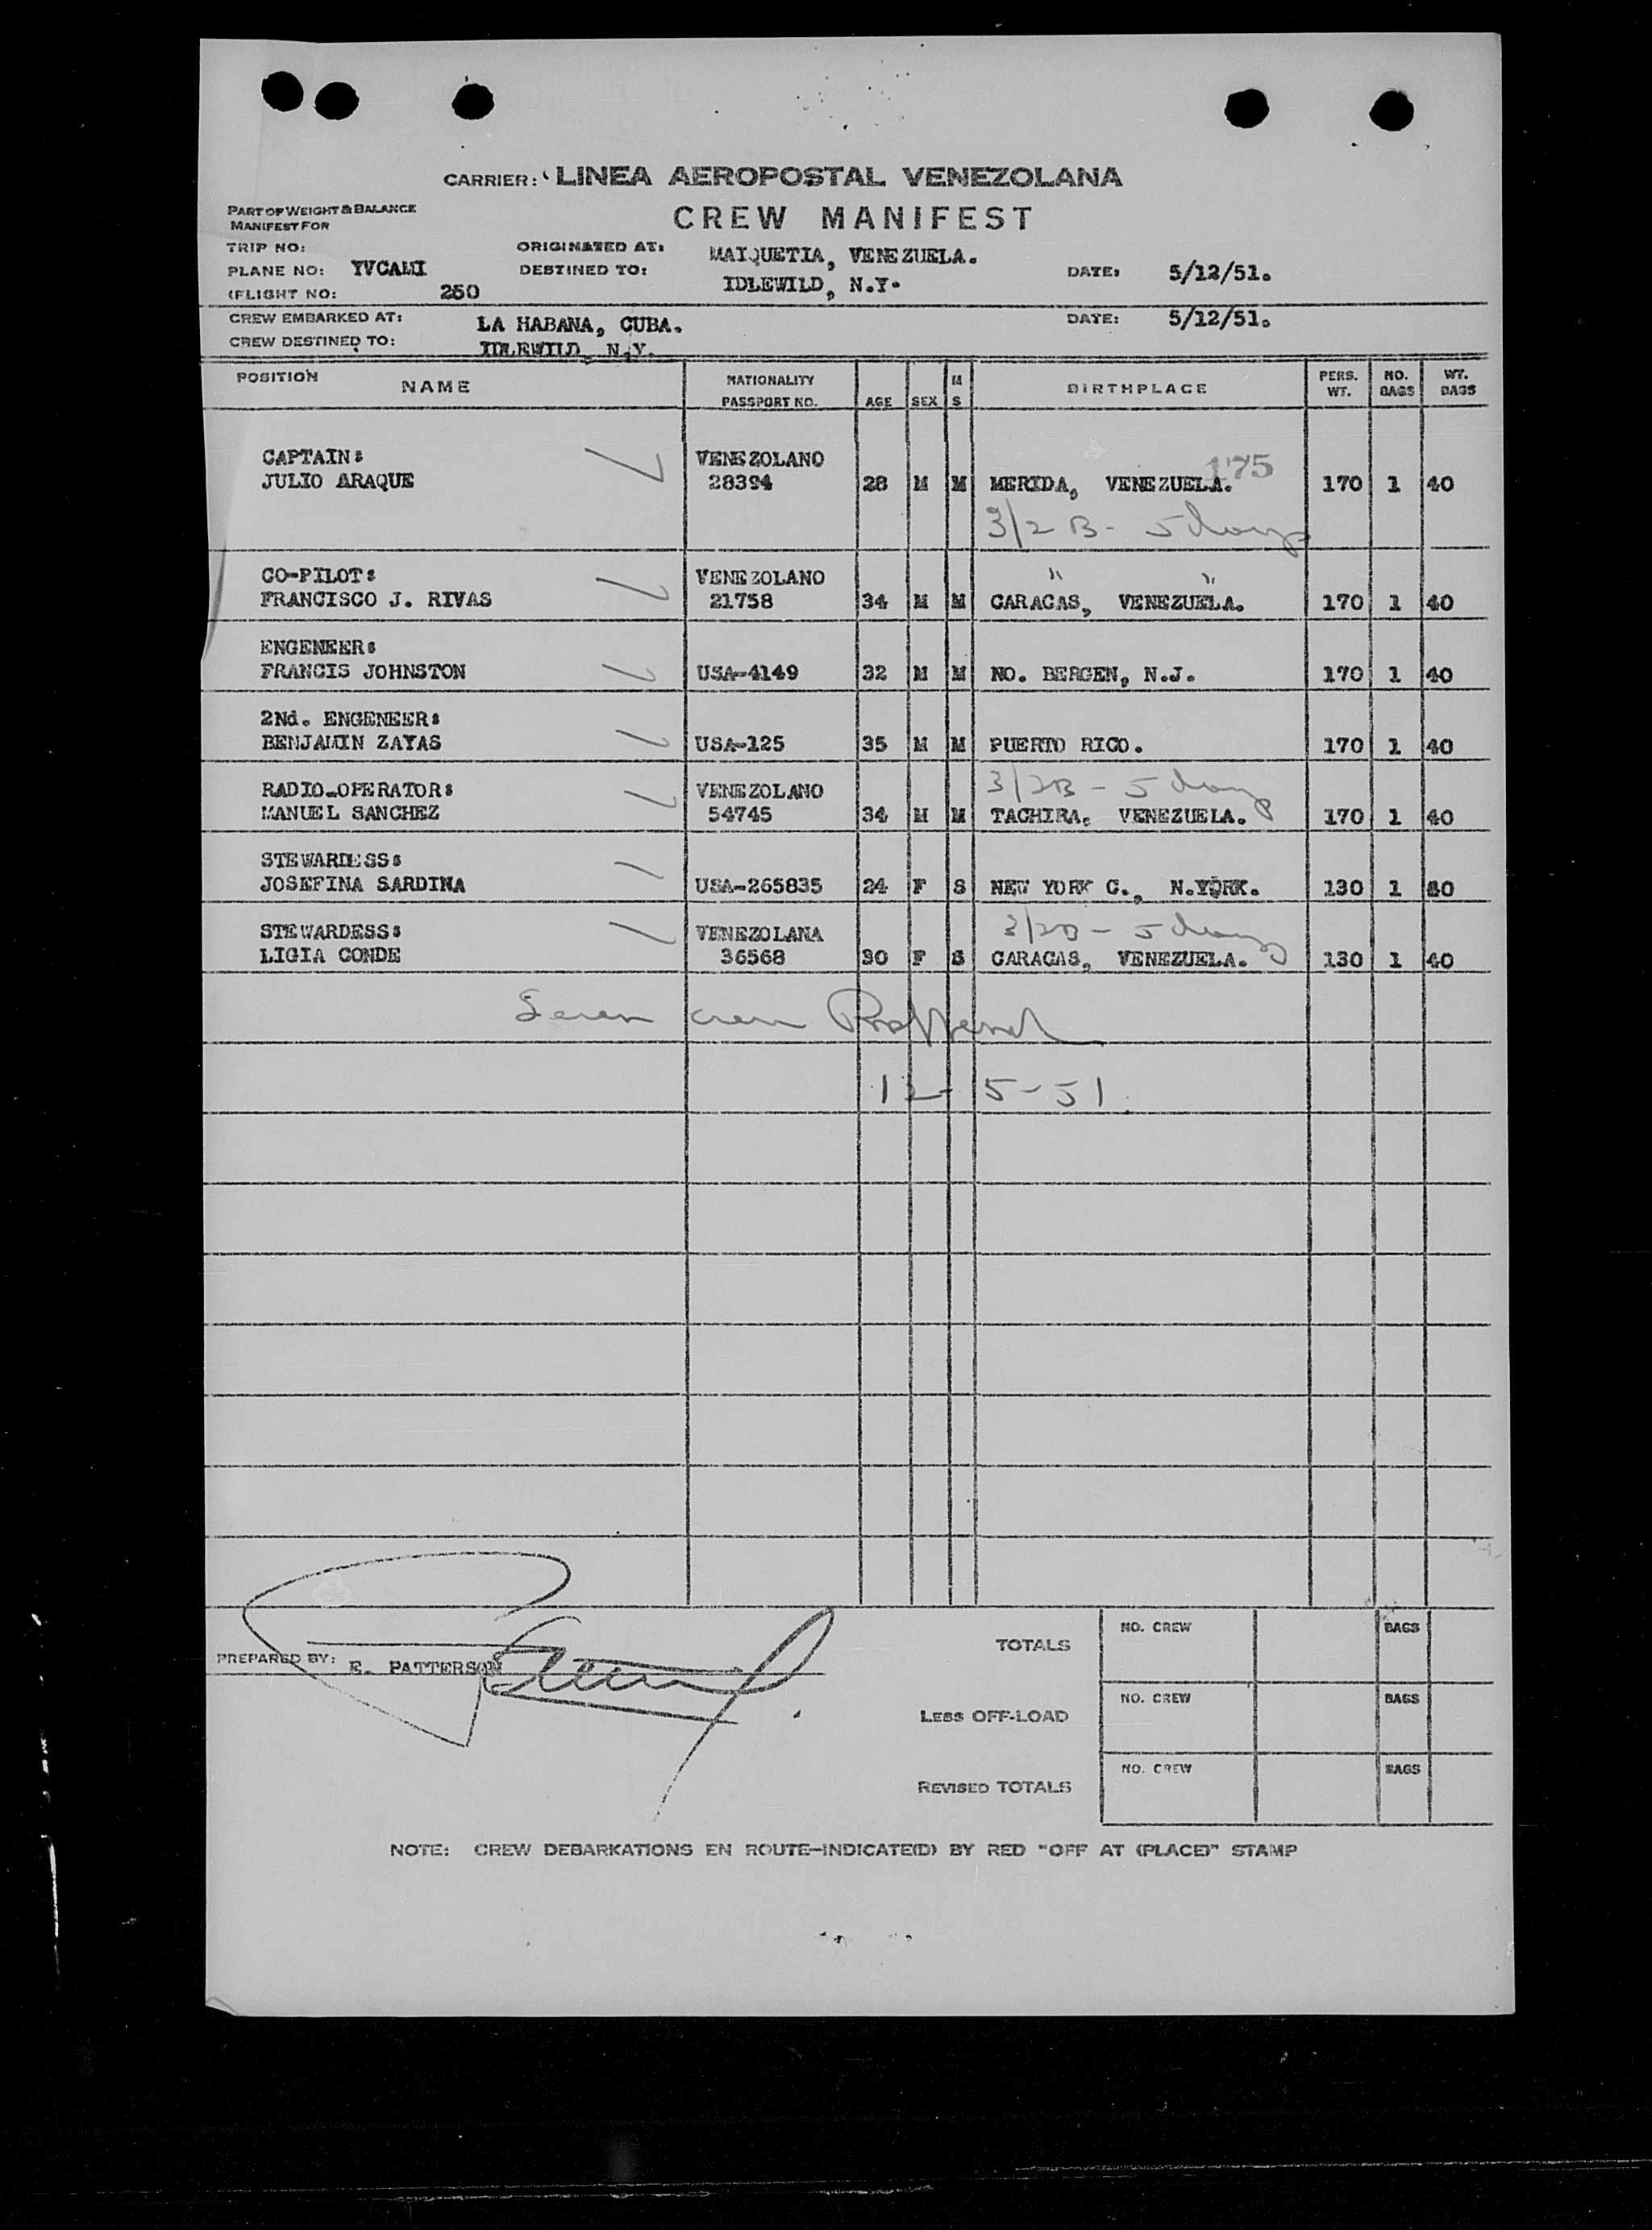 CARRIER: LINEA AEROPOSTAL VENEZOLANA
PART OF WEIGHT & BALANCE
MANIFEST FOR
CREW MANIFEST
TRIP NO:
ORIGINATED AT: MAIQUETIA, VENEZUELA.
PLANE NO: YVCAMI
DESTINED TO: IDLEWILD, N.Y.
DATE: 5/12/51.
(FLIGHT NO: 250
CREW EMBARKED AT: LA HABANA, CUBA.
DATE: 5/12/51.
CREW DESTINED TO: IDLEWILD, N.Y.
POSITION NAME NATIONALITY PASSPORT NO. AGE SEX M S BIRTHPLACE PERS. WT. NO. BAGS WT. BAGS
175
CAPTAIN: VENEZOLANO
JULIO ARAQUE 28394 28 M M MERIDA, VENEZUELA. 170 1 40
3/2 B - 5 days
CO-PILOT: VENEZOLANO " "
FRANCISCO J. RIVAS 21758 34 M M CARACAS, VENEZUELA. 170 1 40
ENGENEER:
FRANCIS JOHNSTON USA-4149 32 M M NO. BERGEN, N.J. 170 1 40
2Nd. ENGENEER:
BENJAMIN ZAYAS USA-125 35 M M PUERTO RICO. 170 1 40
RADIO-OPERATOR: VENEZOLANO 3/2B - 5 days
MANUEL SANCHEZ 54745 34 M M TACHIRA, VENEZUELA. 170 1 40
STEWARDESS:
JOSEFINA SARDINA USA-265835 24 F S NEW YORK C., N.YORK. 130 1 80
STEWARDESS: VENEZOLANA 3/2B - 5 days
LIGIA CONDE 36568 30 F S CARACAS, VENEZUELA. 130 1 40
Seven crew
12-5-51.
TOTALS NO. CREW BAGS
PREPARED BY: E. PATTERSON
LESS OFF-LOAD NO. CREW BAGS
REVISED TOTALS NO. CREW BAGS
NOTE: CREW DEBARKATIONS EN ROUTE—INDICATE(D) BY RED "OFF AT (PLACE)" STAMP